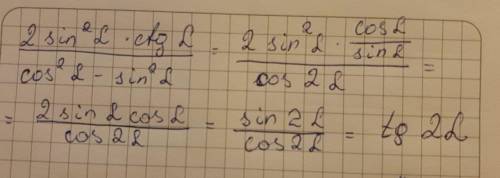 (2 sin²α · ctg α) / (cos²α - sin²α) = (2 sin²α · (cos α / sin α)) / (cos 2α) =
= (2 sin α cos α) / (cos 2α) = (sin 2α) / (cos 2α) = tg 2α